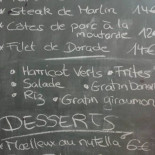 Steak de Marlin 14
Côtes de porc à la
moutarde 12€
Filet de Dorade 14€
• Haricot Verts • Frites
• Salade • Gratin Dauph
• Riz • Gratin giraumon
DESSERTS
Moelleux au nutella 6€